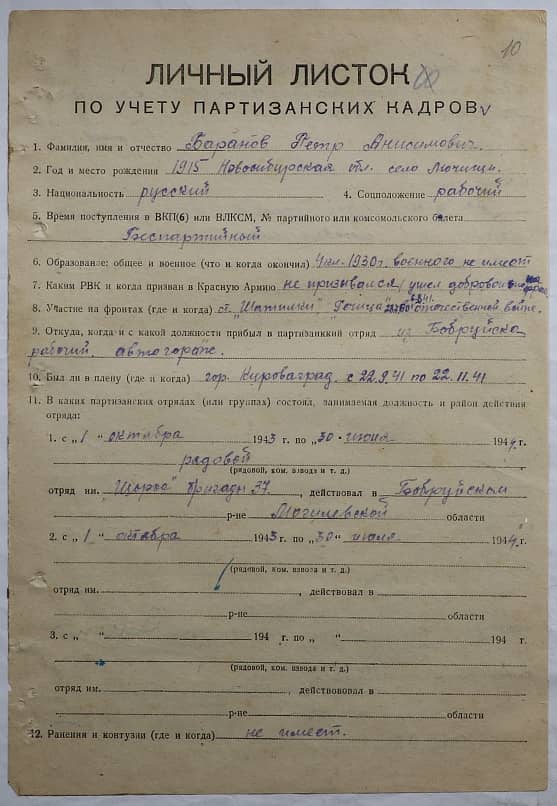 10
ЛИЧНЫЙ ЛИСТОК
ПО УЧЕТУ ПАРТИЗАНСКИХ КАДРОВ
1. Фамилия, имя и отчество Баранов Петр Анисимович.
2. Год и место рождения 1915 Новосибирская обл. село
3. Национальность русский 4. Соцположение рабочий
5. Время поступления в ВКП(б) или ВЛКСМ, № партийного или комсомольского билета
Беспартийный
6. Образование: общее и военное (что и когда окончил) 4 кл. 1930 г. военного не имеет
7. Каким РВК и когда призван в Красную Армию не призывался (ушел добровольно
8. Участие на фронтах (где и когда) ст. "Шатилки" отечественной войне.
9. Откуда, когда и с какой должности прибыл в партизанский отряд из Бобруйска
рабочий
10. Был ли в плену (где и когда) гор. Кироваград с 22.9.41 по 22.11.41
11. В каких партизанских отрядах (или группах) состоял, занимаемая должность и район действия
отряда:
1. с „1" октября 1943 г. по „30" июня 1944 г.
рядовой
(рядовой, ком. взвода и т. д.)
отряд им. "Щорса" бригады 37, действовал в Бобруйском
р-не Могилевской области
2. с „1" октября 1943 г. по „30" июля 1944 г.
(рядовой, ком. взвода и т. д.)
отряд им. , действовал в
р-не области
3. с „ " 194 г. по „ " 194 г.
(рядовой, ком. взвода и т. д.)
отряд им. , действовал в
р-не области
12. Ранения и контузии (где и когда) не имеет.